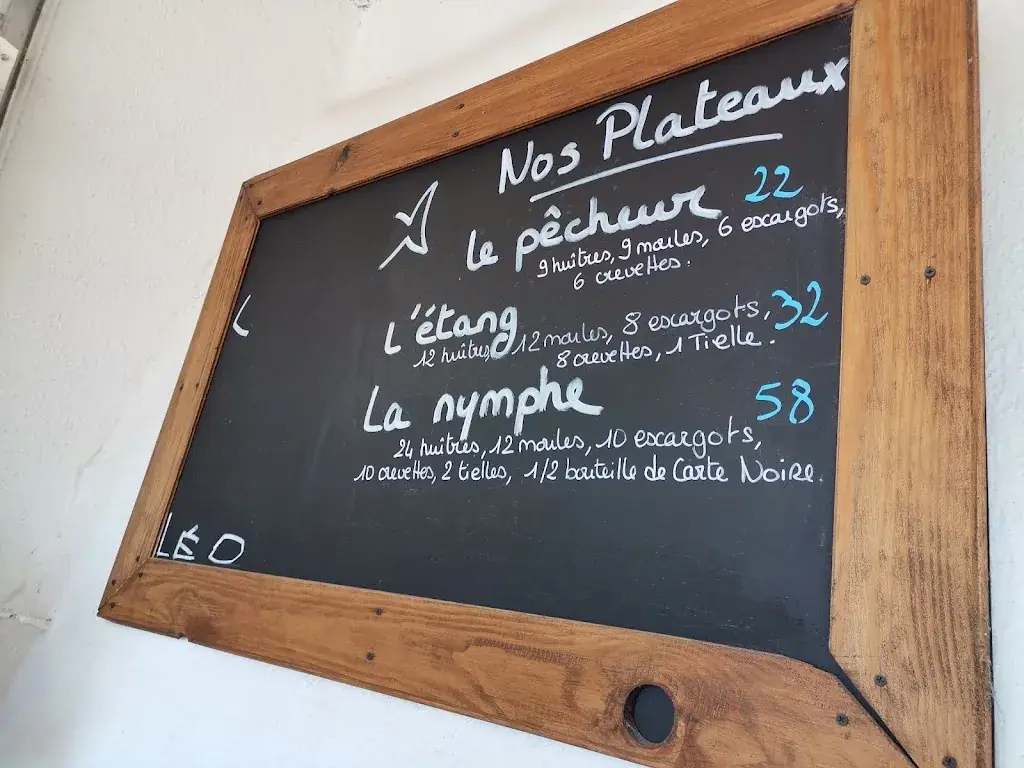 Nos Plateaux
Le pêcheur 22
9 huîtres, 9 moules, 6 escargots,
6 crevettes.
L'étang 32
12 huîtres, 12 moules, 8 escargots,
8 crevettes, 1 Tielle.
La nymphe 58
24 huîtres, 12 moules, 10 escargots,
10 crevettes, 2 tielles, 1/2 bouteille de Carte Noire.
LÉO